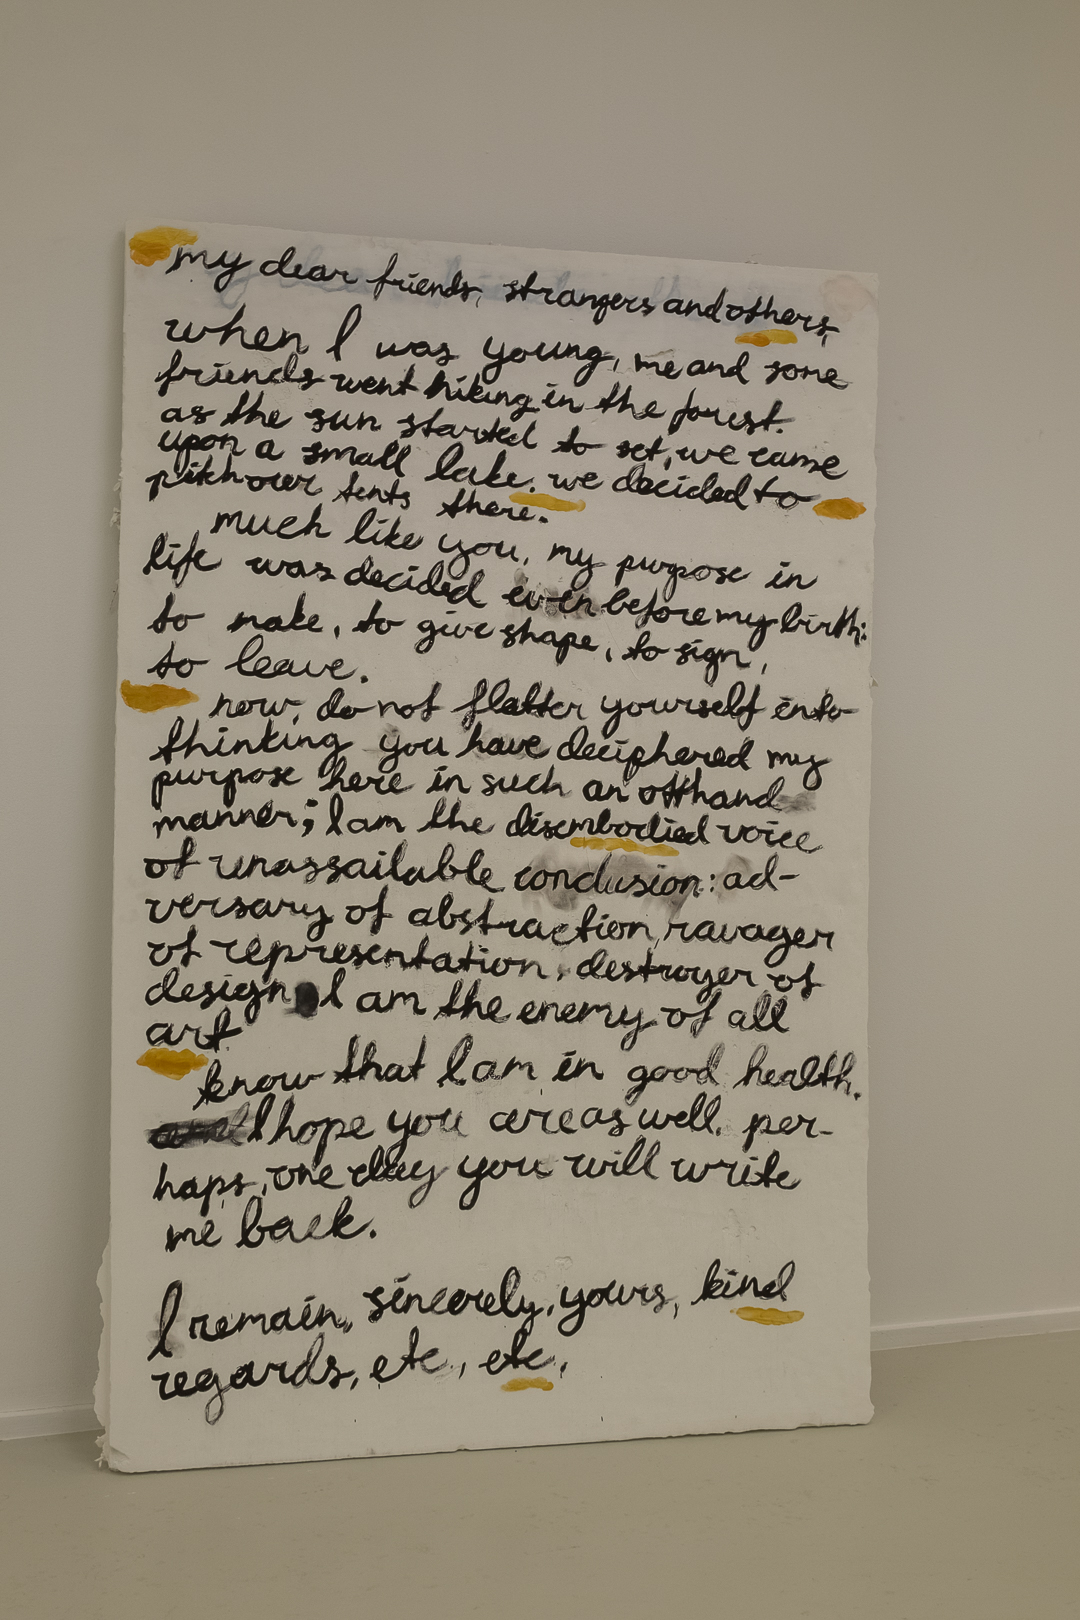 my dear friends, strangers and others,
when I was young, me and some
friends went hiking in the forest.
as the sun started to set, we came
upon a small lake. we decided to
pitch our tents there.
much like you, my purpose in
life was decided even before my birth:
to make, to give shape, to sign,
to leave.
now, do not flatter yourself into
thinking you have deciphered my
purpose here in such an offhand
manner; I am the disembodied voice
of unassailable conclusion: ad-
versary of abstraction, ravager
of representation, destroyer of
design, I am the enemy of all
art.
know that I am in good health.
I hope you are as well. per-
haps, one day you will write
me back.
I remain, sincerely, yours, kind
regards, etc., etc.,